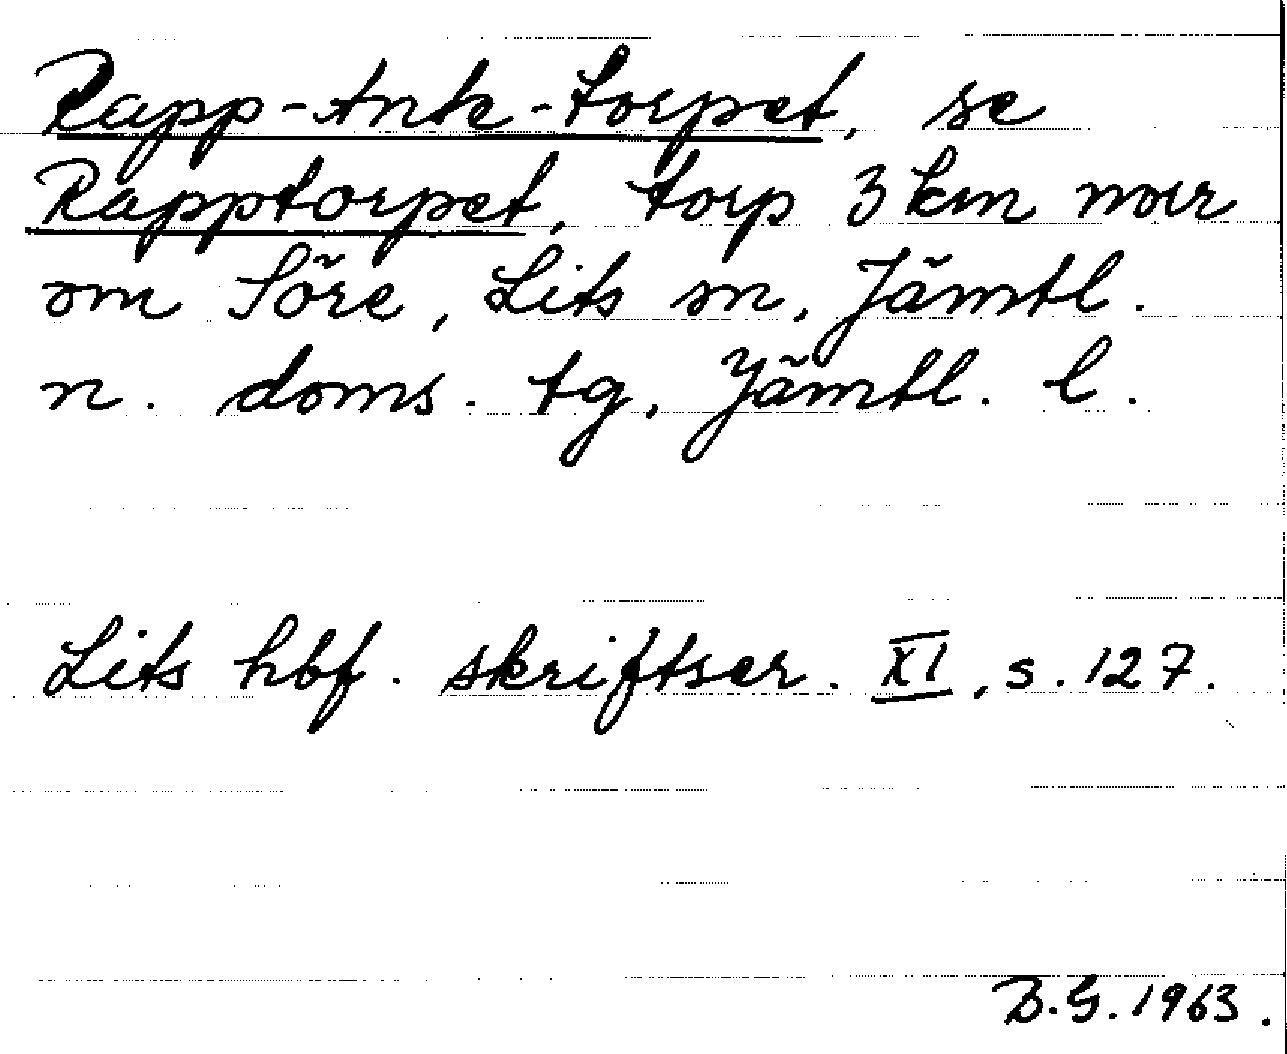 Rapp-Ante-torpet, se
Rapptorpet, torp 3 km norr
om Söre, Lits sn, Jämtl.
n. doms. tg, Jämtl. l.
Lits hbf. skriftser. XI, s. 127.
B.G. 1963.